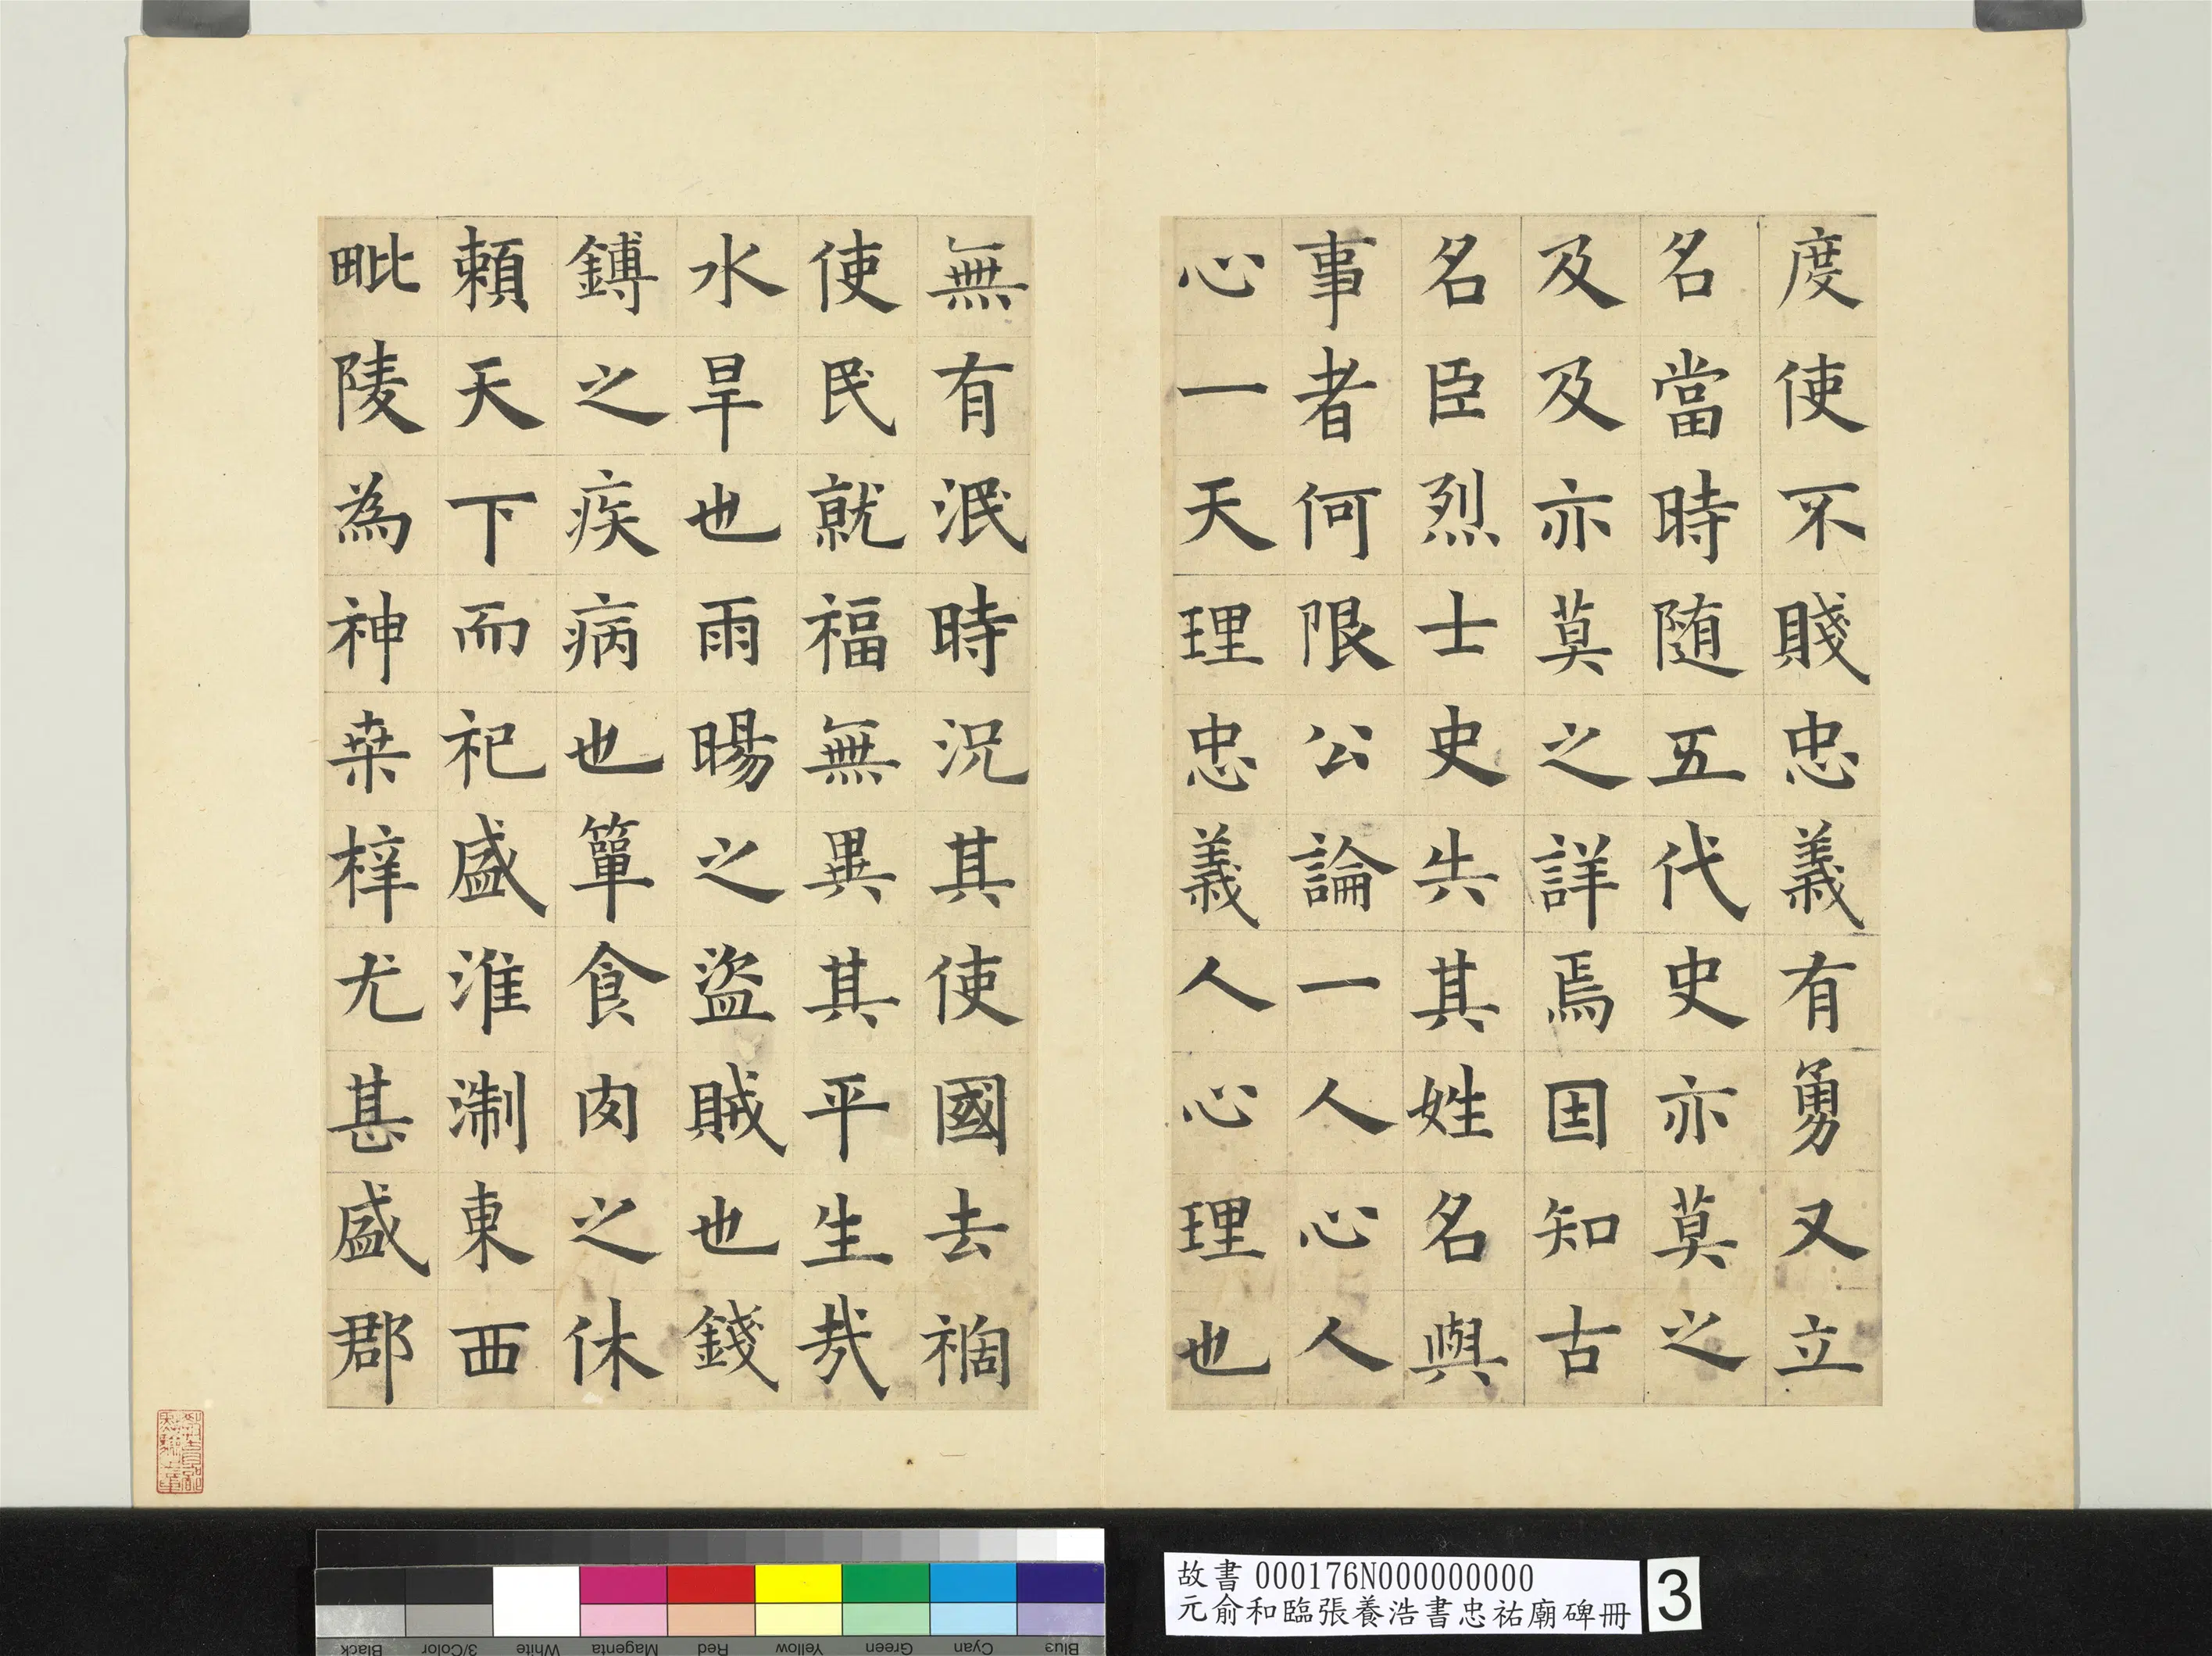 度使不賤忠義有勇又立
名當時随五代史亦莫之
及及亦莫之詳焉因知古
名臣烈士史失其姓名與
事者何限公論一人心人
心一天理忠義人心理也
無有泯時況其使國去禍
使民就福無異其平生哉
水旱也雨暘之盜賊也錢
鎛之疾病也簞食肉之休
頼天下而祀盛淮淛東西
毗陵為神桒梓尤甚盛郡
故書 000176N000000000
元俞和臨張養浩書忠祐廟碑冊
3
Black
3/Color
White
Magenta
Red
Yellow
Green
Cyan
Blue